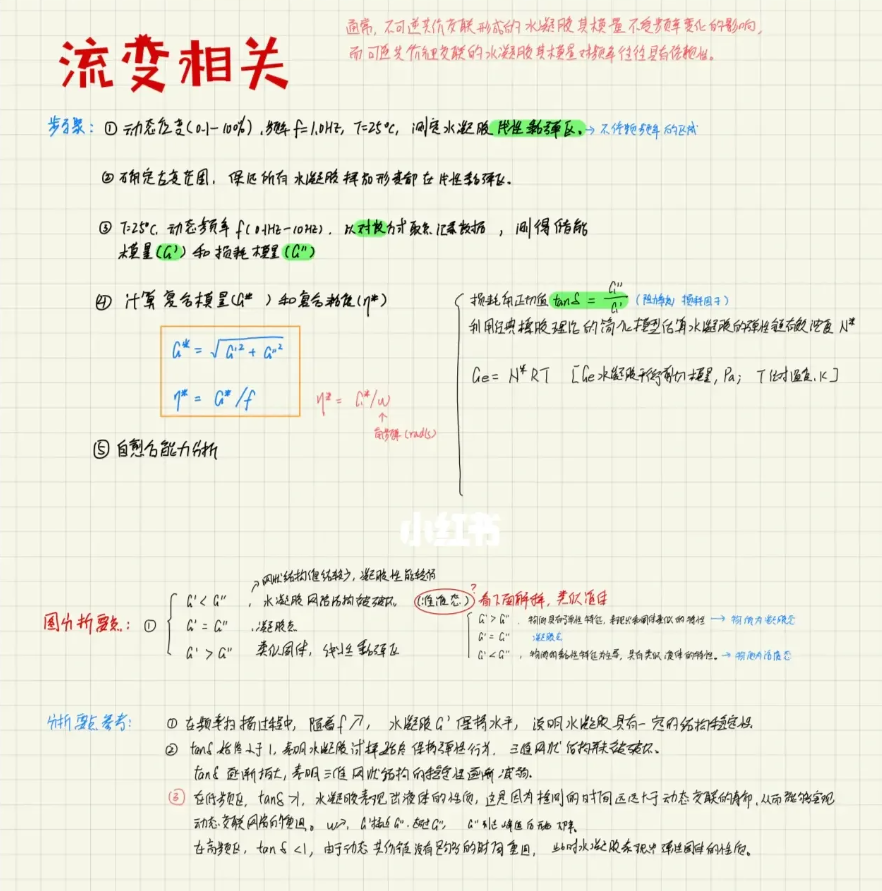 通常，不可逆共价交联形成的水凝胶其模量不受频率变化的影响，
而可逆共价键交联的水凝胶其模量对频率往往具有依赖性。
流变相关
步骤：① 动态应变(0.1-100%)，频率 f=1.0Hz，T=25°C，测定水凝胶线性黏弹区。→ 不依赖频率的区域
② 确定应变范围，保证所有水凝胶样品形变都在线性黏弹区。
③ T=25°C，动态频率 f(0.1Hz-10Hz)，以对数方式取点记录数据，测得储能
模量(G')和损耗模量(G'')
④ 计算复合模量(G*)和复合粘度(η*)
G* = √G'²+G''²
η* = G*/f
η* = G*/w
↑
角频率(rad/s)
⑤ 自愈合能力分析
损耗角正切值 tanδ = G''/G' (阻尼因子, 损耗因子)
利用经典橡胶理论的简化模型估算水凝胶的弹性链有效浓度 N*
Ge = N*RT [Ge 水凝胶平衡剪切模量, Pa; T 绝对温度, K]
小红书
图分析要点：①
↗网状结构但结较少，凝胶性能较弱
G' < G''，水凝胶网络结构被破坏。(准液态)? 看下面解释，类似液体
G' = G'' 凝胶点
G' > G'' 类似固体，线性黏弹区
G' > G''，物质具有弹性特征，表现状态固体类似的特性 → 物质为凝胶态
G' = G'' 凝胶点
G' < G''，物质的黏性特征为主导，具有类似液体的特性。→ 物质为溶液态
分析要点参考：① 在频率扫描过程中，随着 f↗，水凝胶 G' 保持水平，说明水凝胶具有一定的结构稳定性
② tanδ 始终小于1，表明水凝胶试样始终保持弹性行为，三维网状结构未被破坏。
tanδ 逐渐增大，表明三维网状结构的稳定性逐渐减弱。
③ 在低频区，tanδ>1，水凝胶表现出液体的性质，这是因为检测的时间远远大于动态交联的寿命，从而能够实现
动态交联网络的重组。w↗，G'接近G''，超过G''，G''到达峰值后开始下降。
在高频区，tanδ<1，由于动态共价键没有足够的时间重组，此时水凝胶表现出弹性固体的性质。